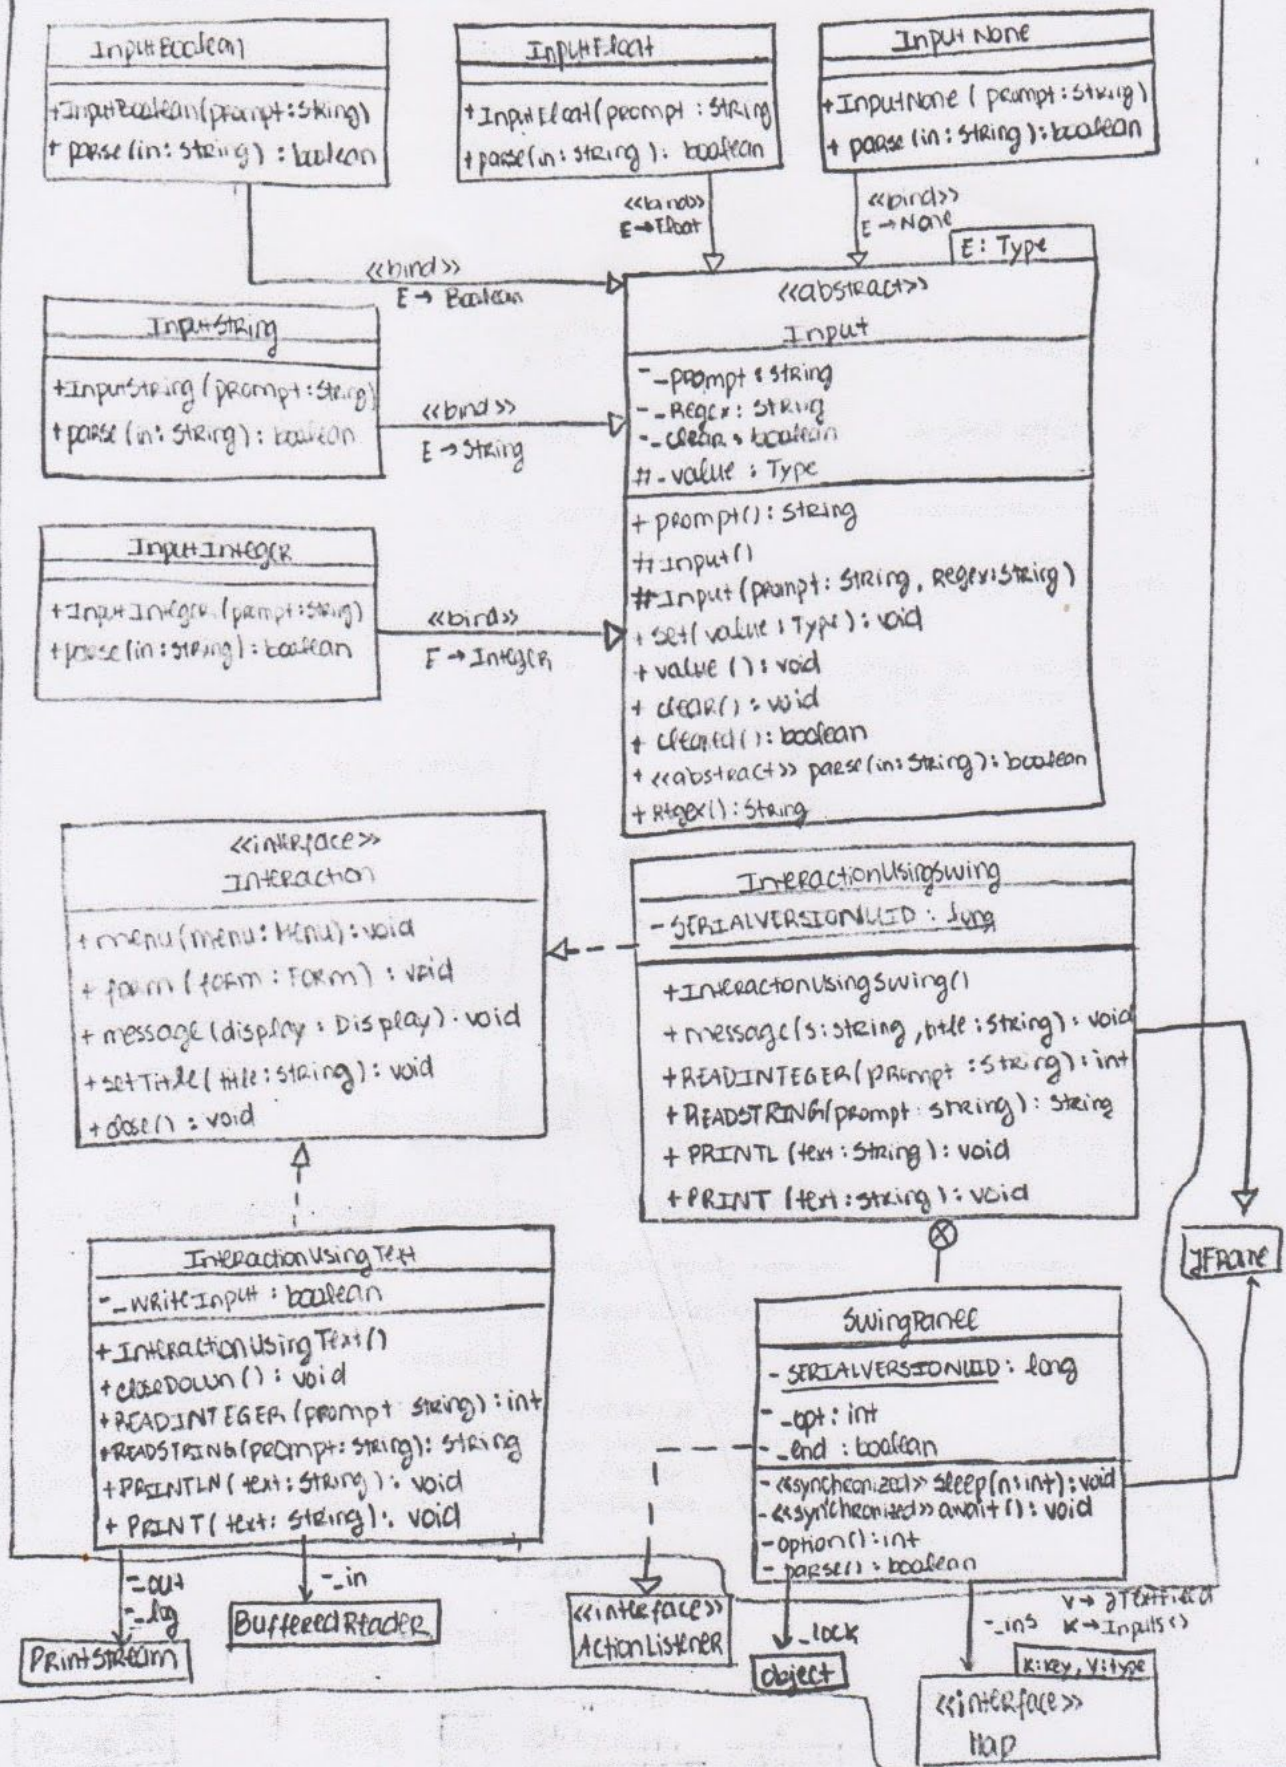 InputBoolean
+InputBoolean(prompt:String)
+ parse(in: string) : boolean
InputFloat
+InputFloat(prompt : String
+parse(in: string): boolean
InputNone
+InputNone ( prompt:String)
+ parse (in: string): boolean
<<bind>>
E→Float
<<bind>>
E→None
<<bind>>
E→ Boolean
E: Type
<<abstract>>
Input
- _prompt : string
- _Regex: String
- _clear : boolean
# _value : Type
+ prompt(): string
# Input()
# Input (prompt: String, Regex:String)
+ set( value : Type): void
+ value (): void
+ clear() : void
+ cleared(): boolean
+ <<abstract>> parse(in:String): boolean
+ Regex(): String
InputString
+InputString (prompt:String)
+parse(in: String): boolean
<<bind>>
E→String
InputInteger
+InputInteger (prompt:String)
+parse(in: String): boolean
<<bind>>
E→Integer
<<interface>>
Interaction
+ menu(menu: Menu): void
+ form (form : Form) : void
+ message(display : Display): void
+setTitle( title: String): void
+close() : void
InteractionUsingSwing
- SERIALVERSIONUID : long
+InteractonUsingSwing()
+message(s:string, title:String): void
+READINTEGER(prompt :String): int
+READSTRING(prompt: string): String
+ PRINTL (text:String): void
+PRINT (text:string): void
JFrame
InteractionUsingText
- _WriteInput : boolean
+InteractionUsingText()
+closeDown() : void
+READINTEGER(prompt: string): int
+READSTRING(prompt: string): string
+PRINTLN( text: String): void
+ PRINT( text: String): void
SwingPanel
- SERIALVERSIONUID: long
- _opt: int
- _end : boolean
- <<synchronized>> sleep(n:int): void
- <<synchronized>> await(): void
-option(): int
- parse(): boolean
-_out
-_log
-_in
PrintStream
BufferedReader
<<interface>>
ActionListener
-_lock
Object
-_ins
V→ JTextField
K→Inputs<>
K:key, V:type
<<interface>>
Map